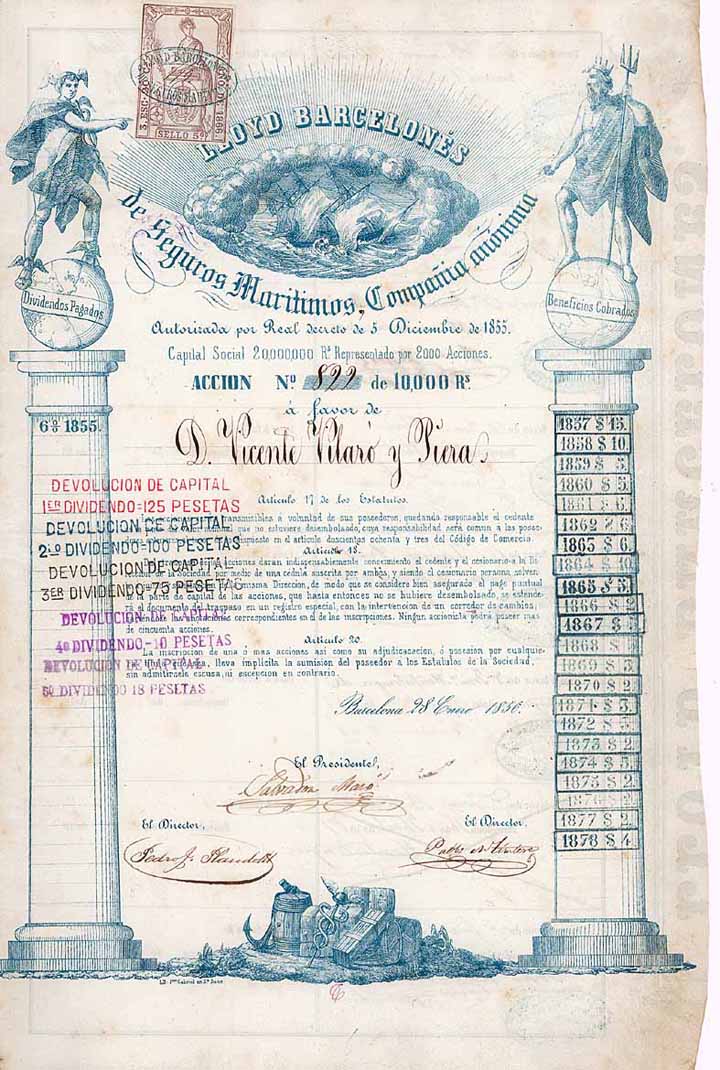 LLOYD BARCELONÉS
de Seguros Maritimos, Compañia anónima
SELLO 59
1866
Dividendos Pagados
Beneficios Cobrados
Autorizada por Real decreto de 5 Diciembre de 1855.
Capital Social 20,000,000 Rs Representado por 2000 Acciones.
ACCION Nº 822 de 10,000 Rs
á favor de
D. Vicente Vilaró y Piera
1855.
DEVOLUCION DE CAPITAL
1ER DIVIDENDO=125 PESETAS
DEVOLUCION DE CAPITAL
2-LO DIVIDENDO=100 PESETAS
DEVOLUCION DE CAPITAL
3ER DIVIDENDO=75 PESETAS
DEVOLUCION DE CAPITAL
4º DIVIDENDO-10 PESETAS
DEVOLUCION DE CAPITAL
5º DIVIDENDO 18 PESETAS
Articulo 17 de los Estatutos.
transmisibles á voluntad de sus poseedores, quedando responsable el cedente
que no estuviere desembolsado, cuya responsabilidad será comun a los posee-
dispuesto en el articulo doscientos ochenta y tres del Código de Comercio.
Articulo 18.
acciones darán indispensablemente conocimiento el cedente y el cesionario a la Di-
por medio de una cedula suscrita por ambos, y siendo el cesionario persona solven-
misma Direccion, de modo que se considere bien asegurado el pago puntual
de la parte de capital de las acciones, que hasta entonces no se hubiere desembolsado, se estende-
rá el documento del traspaso en un registro especial, con la intervencion de un corredor de cambios,
correspondientes en el de las inscripciones. Ningun accionista podrá poseer mas
de cincuenta acciones.
Articulo 20.
La inscripcion de una ó mas acciones asi como su adjudicacion, ó posesion por cualquie-
lleva implicita la sumision del poseedor a los Estatutos de la Sociedad,
sin admitirsele escusa, ni escepcion en contrario.
1857 $ 15.
1858 $ 10.
1859 $ 5.
1860 $ 5.
1861 $ 6.
1862 $ 6.
1863 $ 6.
1864 $ 10.
1865 $ 5.
1866 $ 2
1867 $ 5
1868 $
1869 $ 3
1870 $ 2
1871 $ 3.
1872 $
1873 $ 2.
1874 $ 5
1875 $ 2.
1876 $
1877 $ 2
1878 $ 4
Barcelona 28 Enero 1856.
El Presidente,
El Director,
El Director,